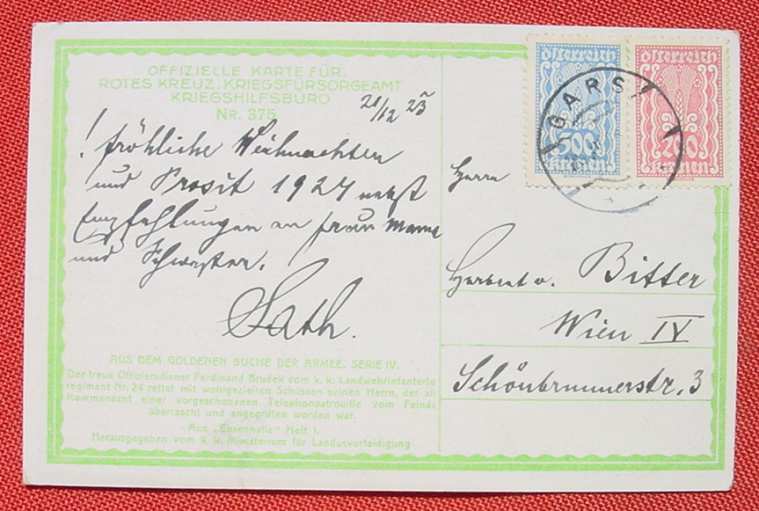 OFFIZIELLE KARTE FÜR
ROTES KREUZ, KRIEGSFÜRSORGEAMT
KRIEGSHILFSBÜRO
NR. 375
21/12 23
! fröhliche Weihnachten
und Prosit 1924 nebst
Empfehlungen an Frau Mama
und Schwester.
AUS DEM GOLDENEN BUCHE DER ARMEE, SERIE IV.
Der treue Offiziersdiener Ferdinand Brudek vom k. k. Landwehrinfanterie
regiment Nr. 24 rettet mit wohlgezielten Schüssen seinen Herrn, der als
Kommandant einer vorgeschobenen Telephonpatrouille vom Feinde
überrascht und angegriffen worden war.
Aus „Ehrenhalle“ Heft 1.
Herausgegeben vom k. k. Ministerium für Landesverteidigung
österreich
500
kronen
österreich
200
kronen
GARS
Herrn
Herbert v. Bitter
Wien IV
Schönbrunnerstr. 3